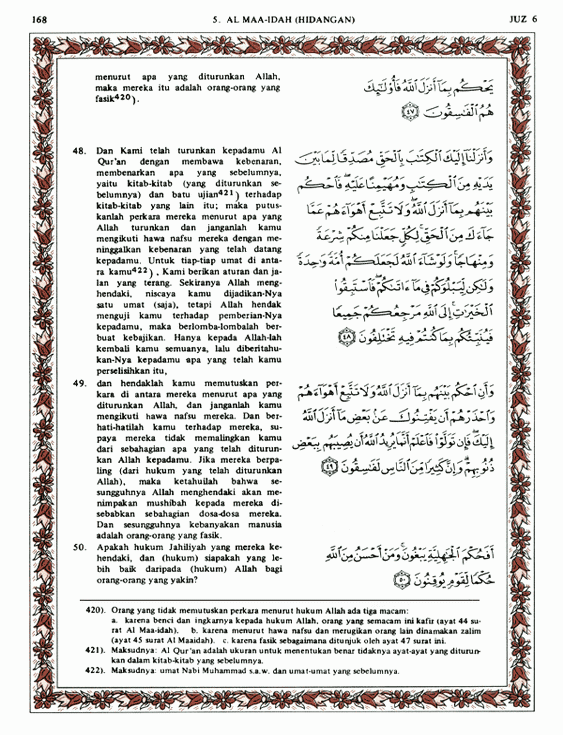 168
5. AL MAA-IDAH (HIDANGAN)
JUZ 6
menurut apa yang diturunkan Allah,
maka mereka itu adalah orang-orang yang
fasik420).
يَحْكُم بِمَا أَنزَلَ اللَّهُ فَأُولَٰئِكَ
هُمُ الْفَاسِقُونَ ﴿٤٧﴾
48. Dan Kami telah turunkan kepadamu Al
Qur'an dengan membawa kebenaran,
membenarkan apa yang sebelumnya,
yaitu kitab-kitab (yang diturunkan se-
belumnya) dan batu ujian421) terhadap
kitab-kitab yang lain itu; maka putus-
kanlah perkara mereka menurut apa yang
Allah turunkan dan janganlah kamu
mengikuti hawa nafsu mereka dengan me-
ninggalkan kebenaran yang telah datang
kepadamu. Untuk tiap-tiap umat di anta-
ra kamu422), Kami berikan aturan dan ja-
lan yang terang. Sekiranya Allah meng-
hendaki, niscaya kamu dijadikan-Nya
satu umat (saja), tetapi Allah hendak
menguji kamu terhadap pemberian-Nya
kepadamu, maka berlomba-lombalah ber-
buat kebajikan. Hanya kepada Allah-lah
kembali kamu semuanya, lalu diberitahu-
kan-Nya kepadamu apa yang telah kamu
perselisihkan itu,
وَأَنزَلْنَا إِلَيْكَ الْكِتَابَ بِالْحَقِّ مُصَدِّقًا لِّمَا بَيْنَ
يَدَيْهِ مِنَ الْكِتَابِ وَمُهَيْمِنًا عَلَيْهِ فَاحْكُم
بَيْنَهُم بِمَا أَنزَلَ اللَّهُ وَلَا تَتَّبِعْ أَهْوَاءَهُمْ عَمَّا
جَاءَكَ مِنَ الْحَقِّ لِكُلٍّ جَعَلْنَا مِنكُمْ شِرْعَةً
وَمِنْهَاجًا وَلَوْ شَاءَ اللَّهُ لَجَعَلَكُمْ أُمَّةً وَاحِدَةً
وَلَٰكِن لِّيَبْلُوَكُمْ فِي مَا آتَاكُمْ فَاسْتَبِقُوا
الْخَيْرَاتِ إِلَى اللَّهِ مَرْجِعُكُمْ جَمِيعًا
فَيُنَبِّئُكُم بِمَا كُنتُمْ فِيهِ تَخْتَلِفُونَ ﴿٤٨﴾
49. dan hendaklah kamu memutuskan per-
kara di antara mereka menurut apa yang
diturunkan Allah, dan janganlah kamu
mengikuti hawa nafsu mereka. Dan ber-
hati-hatilah kamu terhadap mereka, su-
paya mereka tidak memalingkan kamu
dari sebahagian apa yang telah diturun-
kan Allah kepadamu. Jika mereka berpa-
ling (dari hukum yang telah diturunkan
Allah), maka ketahuilah bahwa se-
sungguhnya Allah menghendaki akan me-
nimpakan mushibah kepada mereka di-
sebabkan sebahagian dosa-dosa mereka.
Dan sesungguhnya kebanyakan manusia
adalah orang-orang yang fasik.
وَأَنِ احْكُم بَيْنَهُم بِمَا أَنزَلَ اللَّهُ وَلَا تَتَّبِعْ أَهْوَاءَهُمْ
وَاحْذَرْهُمْ أَن يَفْتِنُوكَ عَن بَعْضِ مَا أَنزَلَ اللَّهُ
إِلَيْكَ فَإِن تَوَلَّوْا فَاعْلَمْ أَنَّمَا يُرِيدُ اللَّهُ أَن يُصِيبَهُم بِبَعْضِ
ذُنُوبِهِمْ وَإِنَّ كَثِيرًا مِّنَ النَّاسِ لَفَاسِقُونَ ﴿٤٩﴾
50. Apakah hukum Jahiliyah yang mereka ke-
hendaki, dan (hukum) siapakah yang le-
bih baik daripada (hukum) Allah bagi
orang-orang yang yakin?
أَفَحُكْمَ الْجَاهِلِيَّةِ يَبْغُونَ وَمَنْ أَحْسَنُ مِنَ اللَّهِ
حُكْمًا لِّقَوْمٍ يُوقِنُونَ ﴿٥٠﴾
420). Orang yang tidak memutuskan perkara menurut hukum Allah ada tiga macam:
a. karena benci dan ingkarnya kepada hukum Allah, orang yang semacam ini kafir (ayat 44 su-
rat Al Maa-idah). b. karena menurut hawa nafsu dan merugikan orang lain dinamakan zalim
(ayat 45 surat Al Maaidah). c. karena fasik sebagaimana ditunjuk oleh ayat 47 surat ini.
421). Maksudnya: Al Qur'an adalah ukuran untuk menentukan benar tidaknya ayat-ayat yang diturun-
kan dalam kitab-kitab yang sebelumnya.
422). Maksudnya: umat Nabi Muhammad s.a.w. dan umat-umat yang sebelumnya.